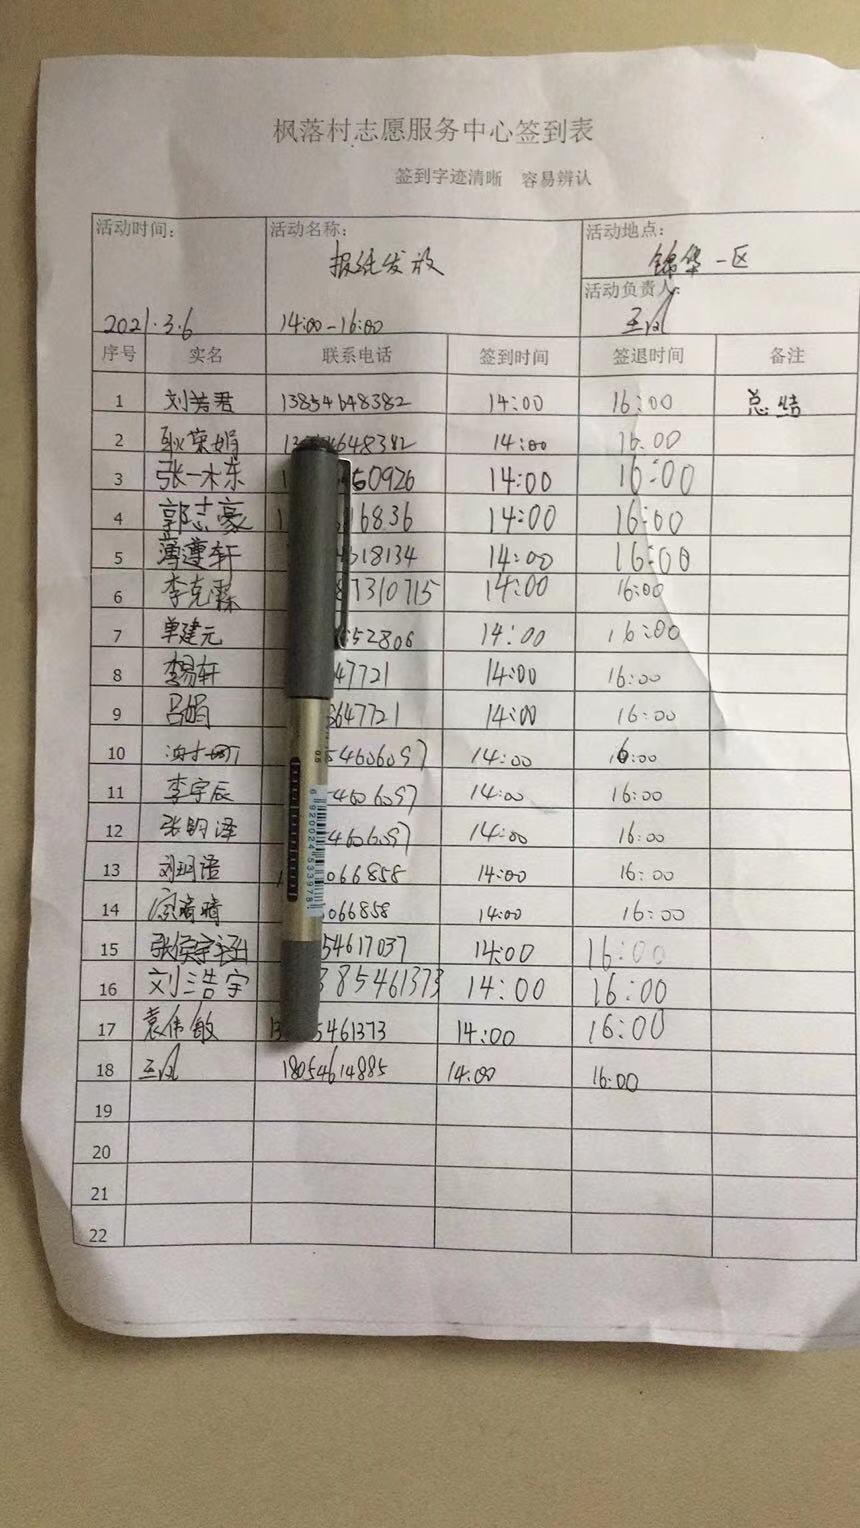 枫落村志愿服务中心签到表
签到字迹清晰 容易辨认
活动时间: 活动名称: 活动地点:
报纸发放 锦华一区
活动负责人:
2021.3.6 14:00-16:00 王凤
序号 实名 联系电话 签到时间 签退时间 备注
1 刘芳君 13854648382 14:00 16:00 总结
2 耿荣娟 4648382 14:00 16:00
3 张一木东 60926 14:00 16:00
4 郭志豪 16836 14:00 16:00
5 薄遵轩 618134 14:00 16:00
6 李克霖 87310715 14:00 16:00
7 单建元 652806 14:00 16:00
8 李易轩 47721 14:00 16:00
9 吕娟 8647721 14:00 16:00
10 54606097 14:00 16:00
11 李宇辰 4606097 14:00 16:00
12 张明泽 4606097 14:00 16:00
13 刘玥语 066858 14:00 16:00
14 066858 14:00 16:00
15 54617037 14:00 16:00
16 刘浩宇 385461373 14:00 16:00
17 袁伟敏 5461373 14:00 16:00
18 王凤 18054614885 14:00 16:00
19
20
21
22
0.5
6920024533978